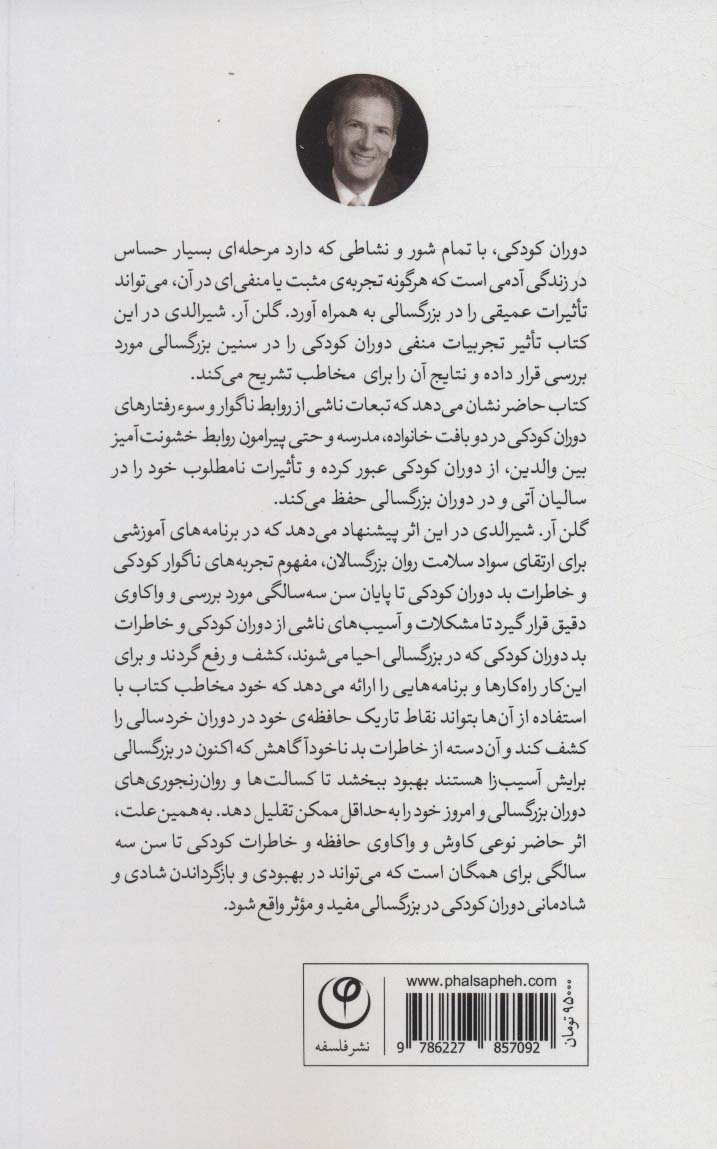 دوران کودکی، با تمام شور و نشاطی که دارد مرحله‌ای بسیار حساس
در زندگی آدمی است که هرگونه تجربه‌ی مثبت یا منفی‌ای در آن، می‌تواند
تأثیرات عمیقی را در بزرگسالی به همراه آورد. گلن آر. شیرالدی در این
کتاب تأثیر تجربیات منفی دوران کودکی را در سنین بزرگسالی مورد
بررسی قرار داده و نتایج آن را برای مخاطب تشریح می‌کند.
کتاب حاضر نشان می‌دهد که تبعات ناشی از روابط ناگوار و سوء رفتارهای
دوران کودکی در دو بافت خانواده، مدرسه و حتی پیرامون روابط خشونت‌آمیز
بین والدین، از دوران کودکی عبور کرده و تأثیرات نامطلوب خود را در
سالیان آتی و در دوران بزرگسالی حفظ می‌کند.
گلن آر. شیرالدی در این اثر پیشنهاد می‌دهد که در برنامه‌های آموزشی
برای ارتقای سواد سلامت روان بزرگسالان، مفهوم تجربه‌های ناگوار کودکی
و خاطرات بد دوران کودکی تا پایان سن سه‌سالگی مورد بررسی و واکاوی
دقیق قرار گیرد تا مشکلات و آسیب‌های ناشی از دوران کودکی و خاطرات
بد دوران کودکی که در بزرگسالی احیا می‌شوند، کشف و رفع گردند و برای
این‌کار راه‌کارها و برنامه‌هایی را ارائه می‌دهد که خود مخاطب کتاب با
استفاده از آن‌ها بتواند نقاط تاریک حافظه‌ی خود در دوران خردسالی را
کشف کند و آن‌دسته از خاطرات بد ناخودآگاهش که اکنون در بزرگسالی
برایش آسیب‌زا هستند بهبود ببخشد تا کسالت‌ها و روان‌رنجوری‌های
دوران بزرگسالی و امروز خود را به‌حداقل ممکن تقلیل دهد. به‌همین علت،
اثر حاضر نوعی کاوش و واکاوی حافظه و خاطرات کودکی تا سن سه
سالگی برای همگان است که می‌تواند در بهبودی و بازگرداندن شادی و
شادمانی دوران کودکی در بزرگسالی مفید و مؤثر واقع شود.
www.phalsapheh.com
۹۵۰۰۰ تومان
9 786227 857092
نشر فلسفه